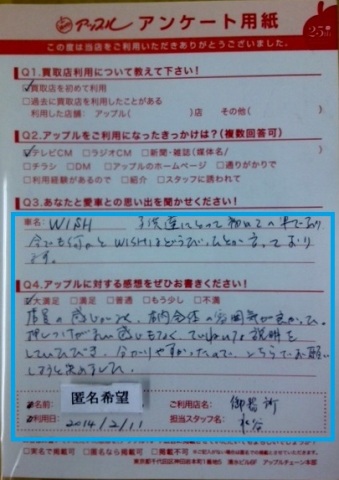 アップル アンケート用紙
25th
この度は当店をご利用いただきありがとうございました。
Q1.買取店利用について教えて下さい!
☑買取店を初めて利用
□過去に買取店を利用したことがある
利用した店舗: アップル( )店 その他( )
Q2.アップルをご利用になったきっかけは?(複数回答可)
☑テレビCM □ラジオCM □新聞・雑誌(媒体名/ )
□チラシ □DM □アップルのホームページ □通りがかりで
□利用経験があるので □紹介 □スタッフに誘われて
Q3.あなたと愛車との思い出を聞かせください!
車名: WISH 子供達にとって初めての車であり
今でも
ます。
Q4.アップルに対する感想をぜひお書きください!
☑大満足 □満足 □普通 □もう少し □不満
店員の感じがよく、店内全体の雰囲気が良かった。
押しつけがましい感じもなく、ていねいな説明を
していただき、分かりやすかったので、こちらでお願い
しようと決めました。
お名前: 匿名希望 ご利用店名: 御器所
ご利用日: 2014/2/11 担当スタッフ名: 水谷
□実名で掲載可 □匿名なら掲載可 □掲載不可
東京都千代田区神田 清水ビル6F アップルチェーン本部